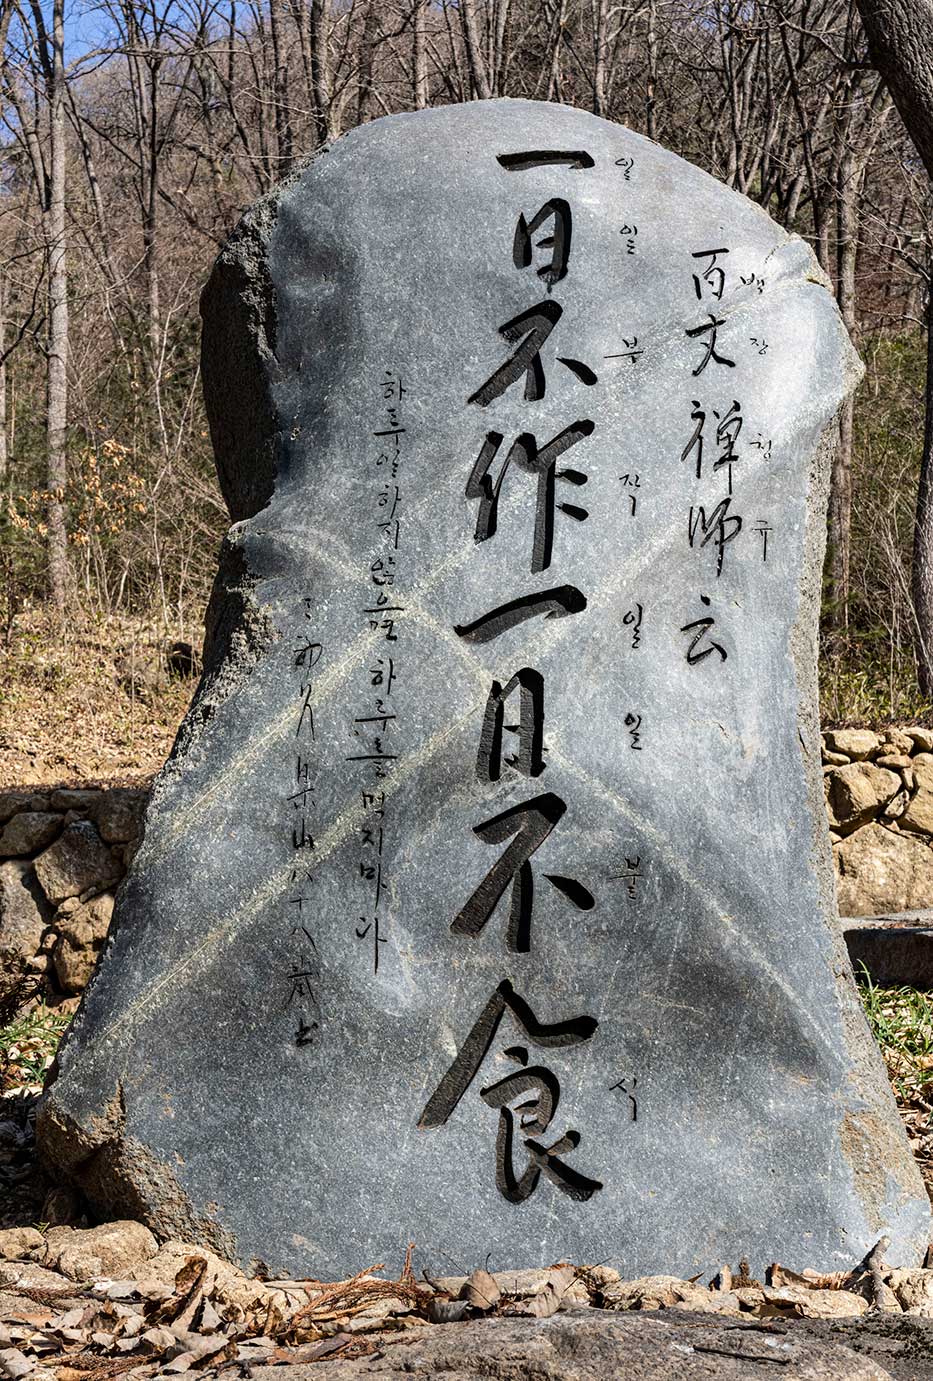 백장청규
百丈禅师云
일일부작일일불식
一日不作一日不食
하루일하지않으면하루를먹지마라
杲山八十八歲书